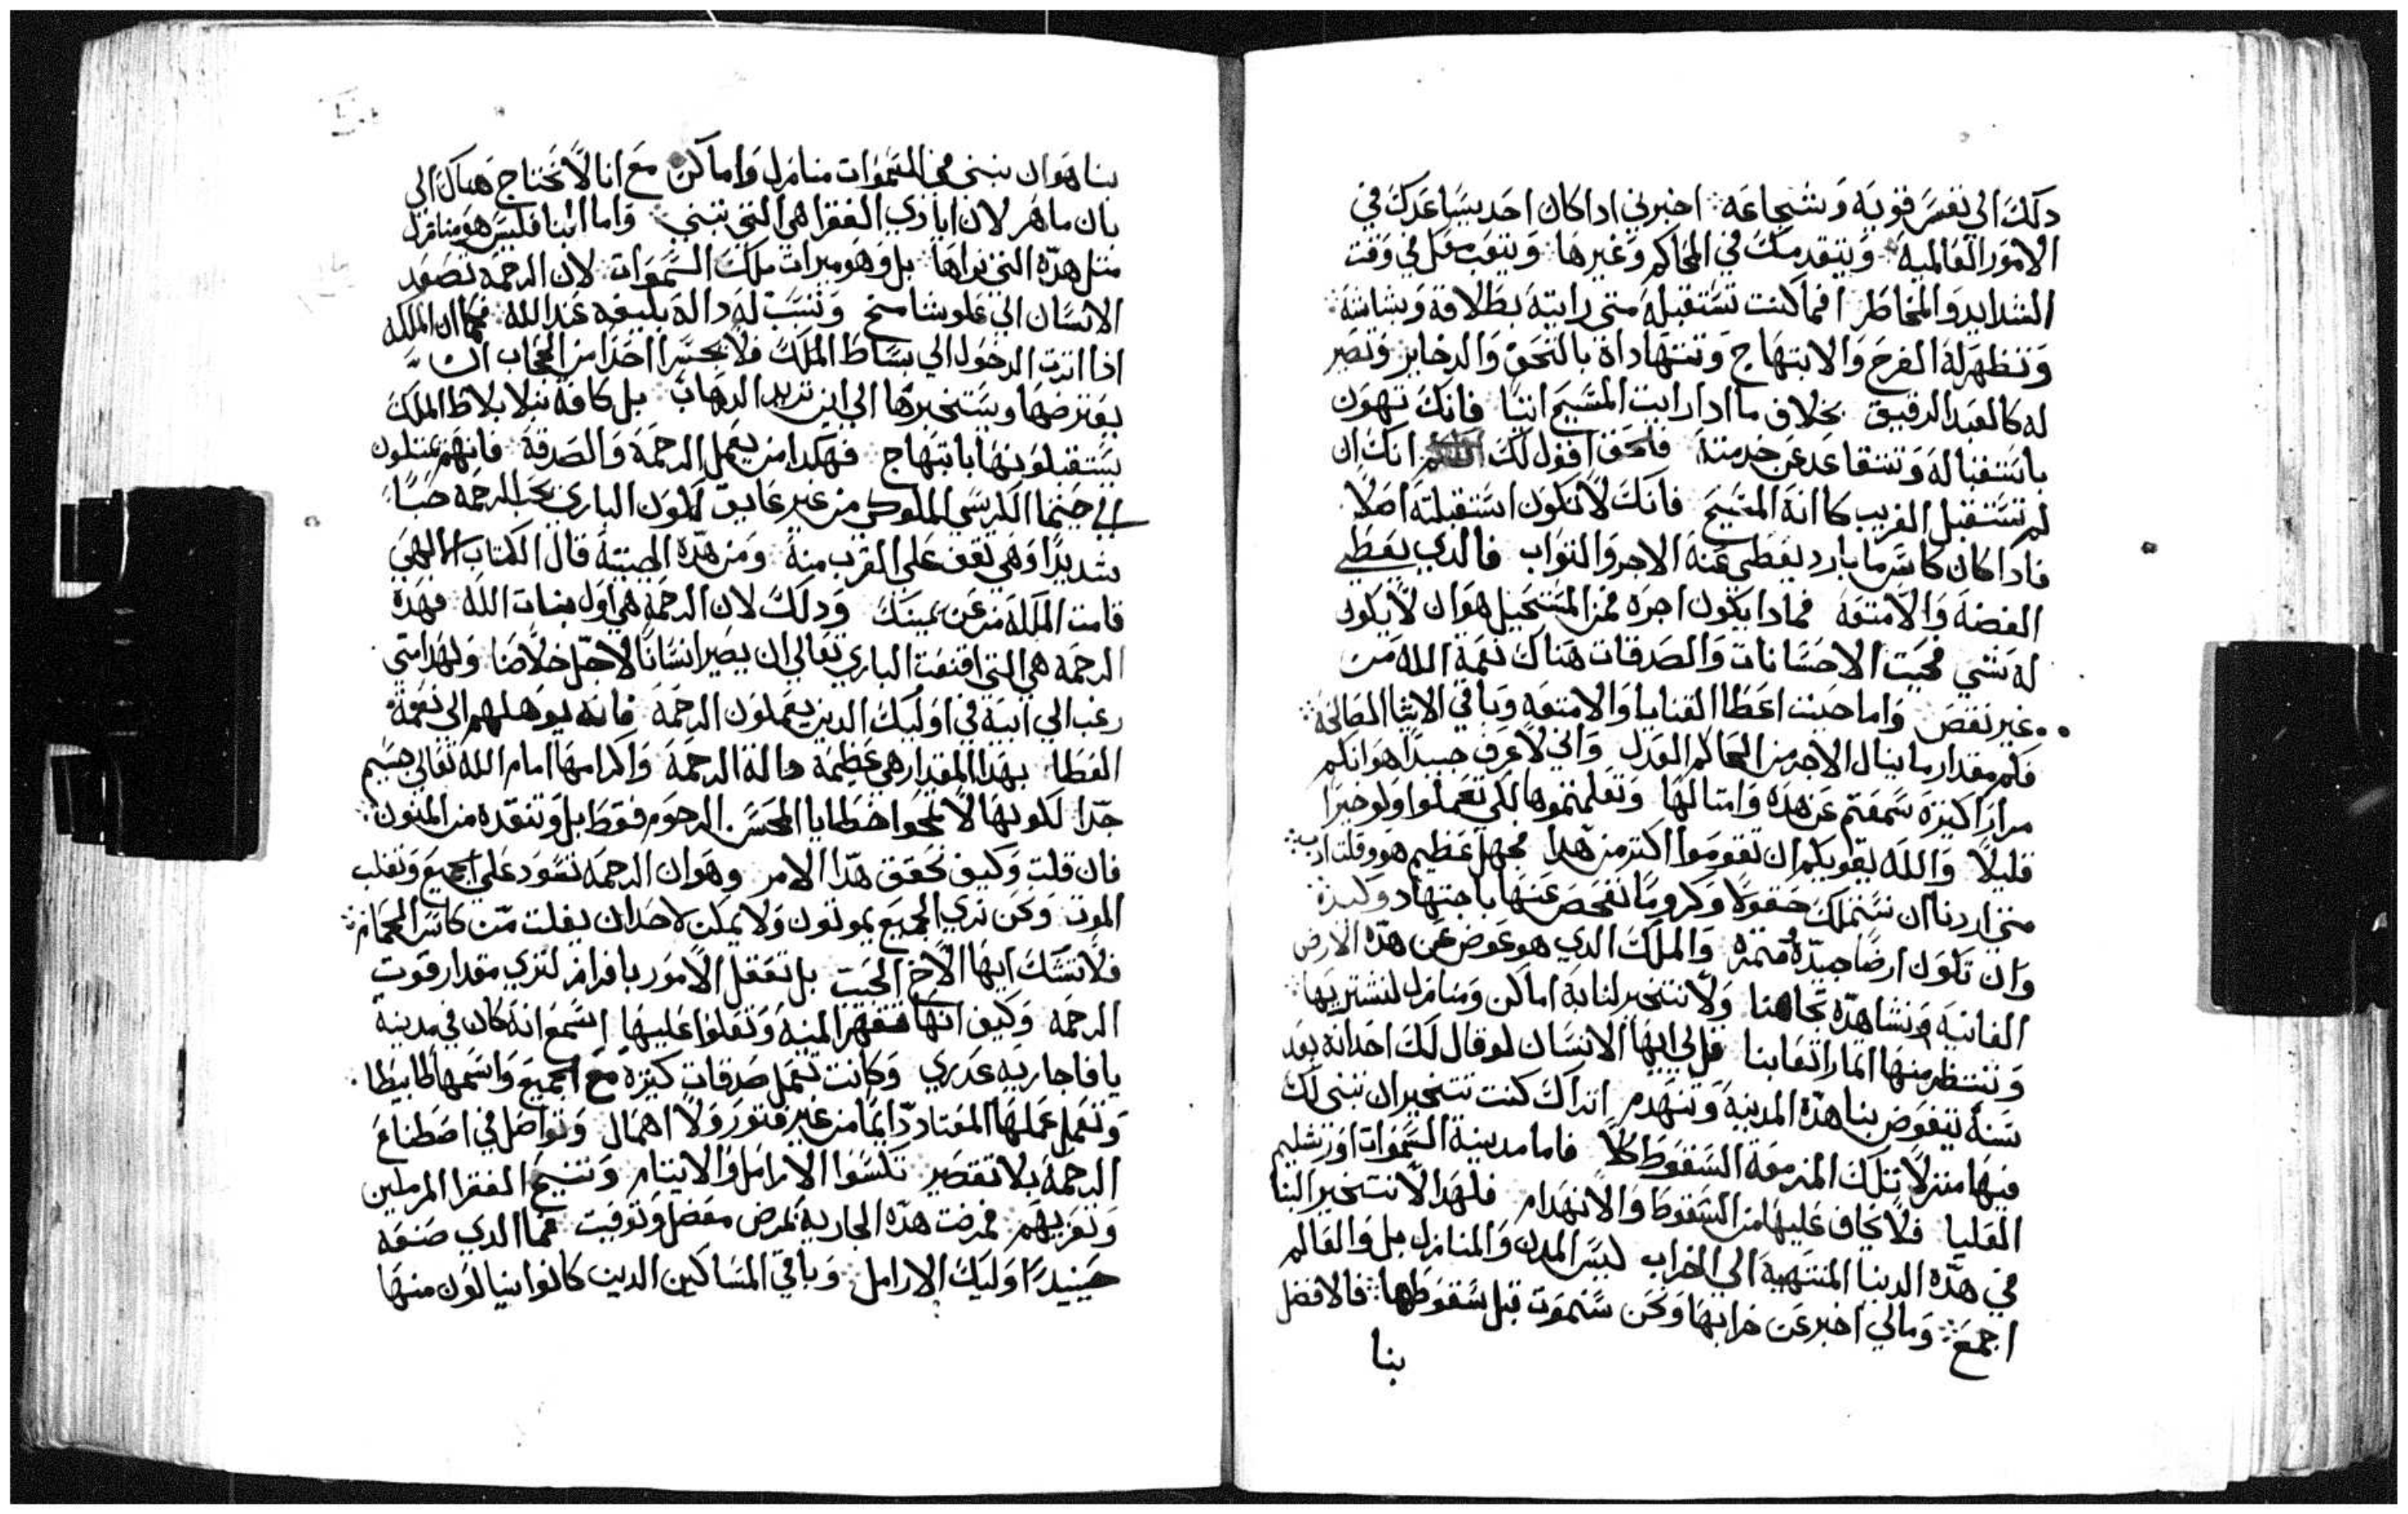 دلك الي نفس قويه وشجاعه اخبرني ادا كان احد يساعدك في
الامور العالميه ويتقدم منك في المحاكم وغيرها ويتعب معك في وقت
الشدايد والمخاطر افما كنت تستقبله متي رايته بطلاقة وبشاشة
وتظهر له الفرح والابتهاج وتتهاداه بالتحف والدخاير وتصير
له كالعبد الرقيق بخلاف ما ادا رايت المسيح اتيًا فانك تهون
باستقباله وتتقاعد عن خدمته فالحق اقول لك انك ان
لم تستقبل الغريب كانه المسيح فانك لا تكون استقبلته اصلًا
فادا كان كاس ما بارد يعطي عنه الاجر والتواب فالدي يعطي
الفضة والامتعه فمادا يكون اجره فمن المستحيل هو ان لا يكون
له شي فحيت الاحسانات والصدقات هناك نعمة الله من
غير نقص واما حيت اعطا القنايا والامتعه وباقي الاشا الصالحة
فكم مقدار ما ينال الاجر من الحاكم العدل واني لاعرف جيدًا هو انكم
مرارًا كتيرة سمعتم عن هده وامتالها وتعلمتموها لكي تعملوا ولو خيرًا
قليلًا والله يقويكم ان تقوموا اكتر من هدا فجهل عظيم هو وقلت ادب
متي اردنا ان نستملك حقولًا وكرومًا نفحص عنها باجتهاد وكيدة
وان تكون ارضًا جيدة متمرة والملك الدي هو عوض عن هده الارض
الفانية ونشاهده تجاهنا ولا نتخير لنا به اماكن ومنازل لنشتريها
وننتظر منها اتمار اتعابنا قل لي ايها الانسان لو قال لك احد انه بعد
سنة يتقوض بنا هده المدينة وتنهدم اتراك كنت تتخير ان تبني لك
فيها منزلًا تلك المزمعة السقوط كلا فاما مدينة السموات اورشليم
العليا فلا نخاف عليها من السقوط والانهدام فلهدا لا نتخير البنا
في هده الدنيا المنتهية الي الخراب ليس المدن والمنازل بل والعالم
اجمع ومالي اخبر عن خرابها ونحن سنموت قبل سقوطها فالافضل
بنا
بنا هو ان نبني في السموات منازل واماكن مع انا لا نحتاج هناك الي
بان ماهر لان ايادي الفقرا هي التي تبني واما البنا فليس هو منازل
متل هده التي نراها بل وهو ميرات ملك السموات لان الرحمه تصعد
الانسان الي علو شامخ وتسبب له دالة بليغه عند الله فكما ان الملكه
ادا اترت الدخول الي بساط الملك فلا يجسر احدًا من الحجاب ان
يعترضها ويستخبرها الي اين تريد الدهاب بل كافة نبلا بلاط الملك
يستقبلونها بابتهاج فهكدا من يعمل الرحمة والصدقة فانهم يمتلون
الي حيتما الكرسي الملوكي من غير عايق لكون الباري يحب الرحمه حبًا
شديدًا وهي تقف علي القرب منه ومن هده الحيتية قال الكتاب الالهي
قامت الملكة من عن يمينك ودلك لان الرحمة هي اول بنات الله فهده
الرحمه هي التي اقنعت الباري تعالي ان يصير انسانًا لاجل خلاصنا ولهدا متي
رغب الي ابنة في اوليك الدين يعملون الرحمة فانه يوهلهم الي نعمة
العطا بهدا المقدار هي عظيمة دالة الرحمة واكرامها امام الله تعالي جسيم
جدًا لكونها لا تمحوا خطايا المحسن الرحوم فقط بل وتنقده من الموت
فان قلت وكيف نحقق هدا الامر وهو ان الرحمه تسود علي الجميع وتغلب
الموت ونحن نري الجميع يموتون ولا يمكن لاحد ان يفلت من كاس الحمام
فلا تشك ايها الاخ الحبيب بل تعقل الامور بافراز لتري مقدار قوت
الرحمة وكيف انها تقهر المنية وتعلوا عليها اسمع انه كان في مدينة
يافا جاريه عدري وكانت تعمل صدقات كتيرة مع الجميع واسمها طابيطا
وتعمل عملها المعتاد دايمًا من غير فتور ولا اهمال وتواصل في اصطناع
الرحمة بلا تقصير تكسوا الارامل والايتام وتشبع الفقرا المرملين
وتعزيهم فمرضت هده الجارية بمرض معضل وتوفيت فما الدي صنعه
حينيدًا اوليك الارامل وباقي المساكين الدين كانوا ينالون منها